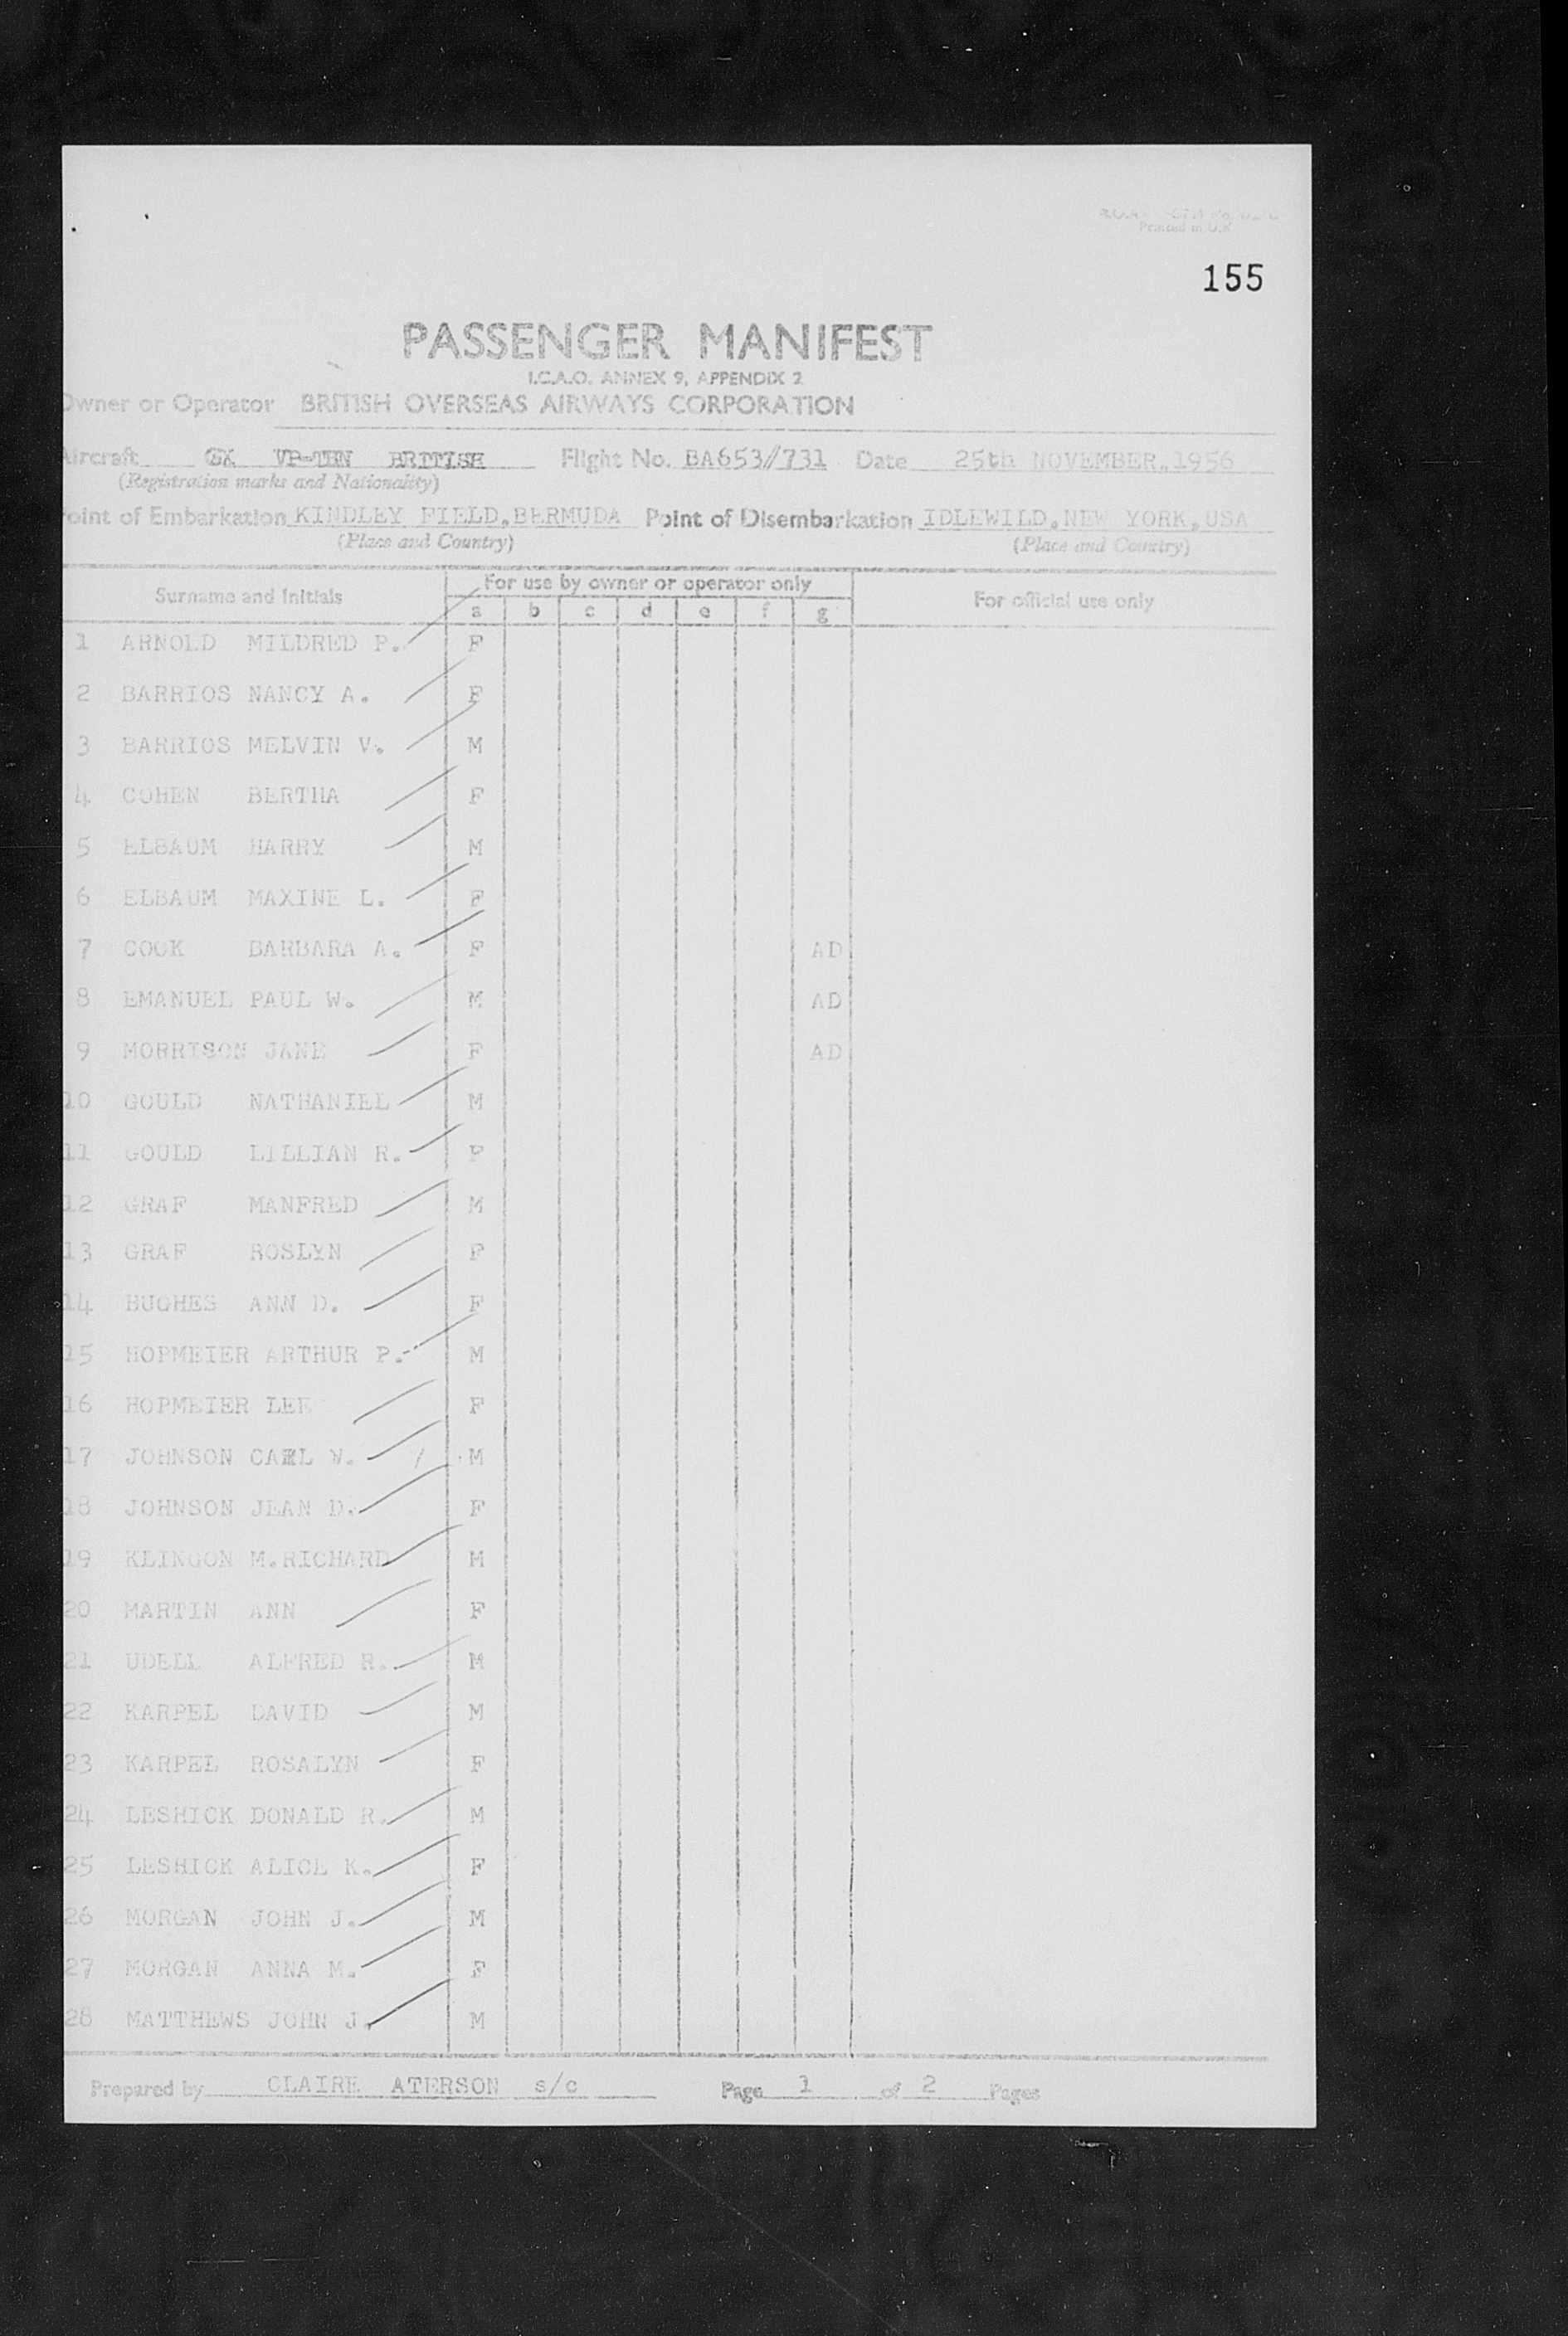 Printed in U.K.
155
PASSENGER MANIFEST
I.C.A.O. ANNEX 9, APPENDIX 2
Owner or Operator BRITISH OVERSEAS AIRWAYS CORPORATION
Aircraft VP-TBN BRITISH Flight No. BA653//731 Date 25th NOVEMBER.1956
(Registration marks and Nationality)
Point of Embarkation KINDLEY FIELD.BERMUDA Point of Disembarkation IDLEWILD.NEW YORK,USA
(Place and Country) (Place and Country)
Surname and Initials For use by owner or operator only For official use only
a b c d e f g
1 ARNOLD MILDRED P. F
2 BARRIOS NANCY A. F
3 BARRIOS MELVIN V. M
4 COHEN BERTHA F
5 ELBAUM HARRY M
6 ELBAUM MAXINE L. F
7 COOK BARBARA A. F AD
8 EMANUEL PAUL W. M AD
9 MORRISON JANE F AD
10 GOULD NATHANIEL M
11 GOULD LILLIAN R. F
12 GRAF MANFRED M
13 GRAF ROSLYN F
14 HUGHES ANN D. F
15 HOPMEIER ARTHUR P. M
16 HOPMEIER LEE F
17 JOHNSON CARL W. M
18 JOHNSON JEAN D. F
19 KLINGON M.RICHARD M
20 MARTIN ANN F
21 UDELL ALFRED R. M
22 KARPEL DAVID M
23 KARPEL ROSALYN F
24 LESHICK DONALD R. M
25 LESHICK ALICE K. F
26 MORGAN JOHN J. M
27 MORGAN ANNA M. F
28 MATTHEWS JOHN J. M
Prepared by CLAIRE ATERSON s/c Page 1 of 2 Pages